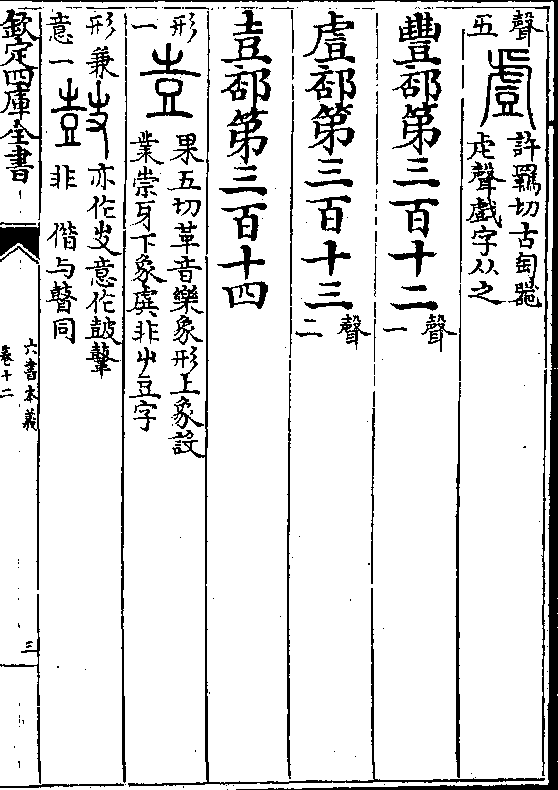 聲五 䖒 許羈切古匋𧯷虍聲戲字从之
豐部第三百十二聲一
䖒部第三百十三聲二
壴部第三百十四
形一 壴 果五切革音樂象形上象設業崇牙下象虡非屮豆字
形兼意一 鼓 亦作𡔷意作皷鼙非 偕与瞽同
欽定四庫全書
六書本義
卷十二
三